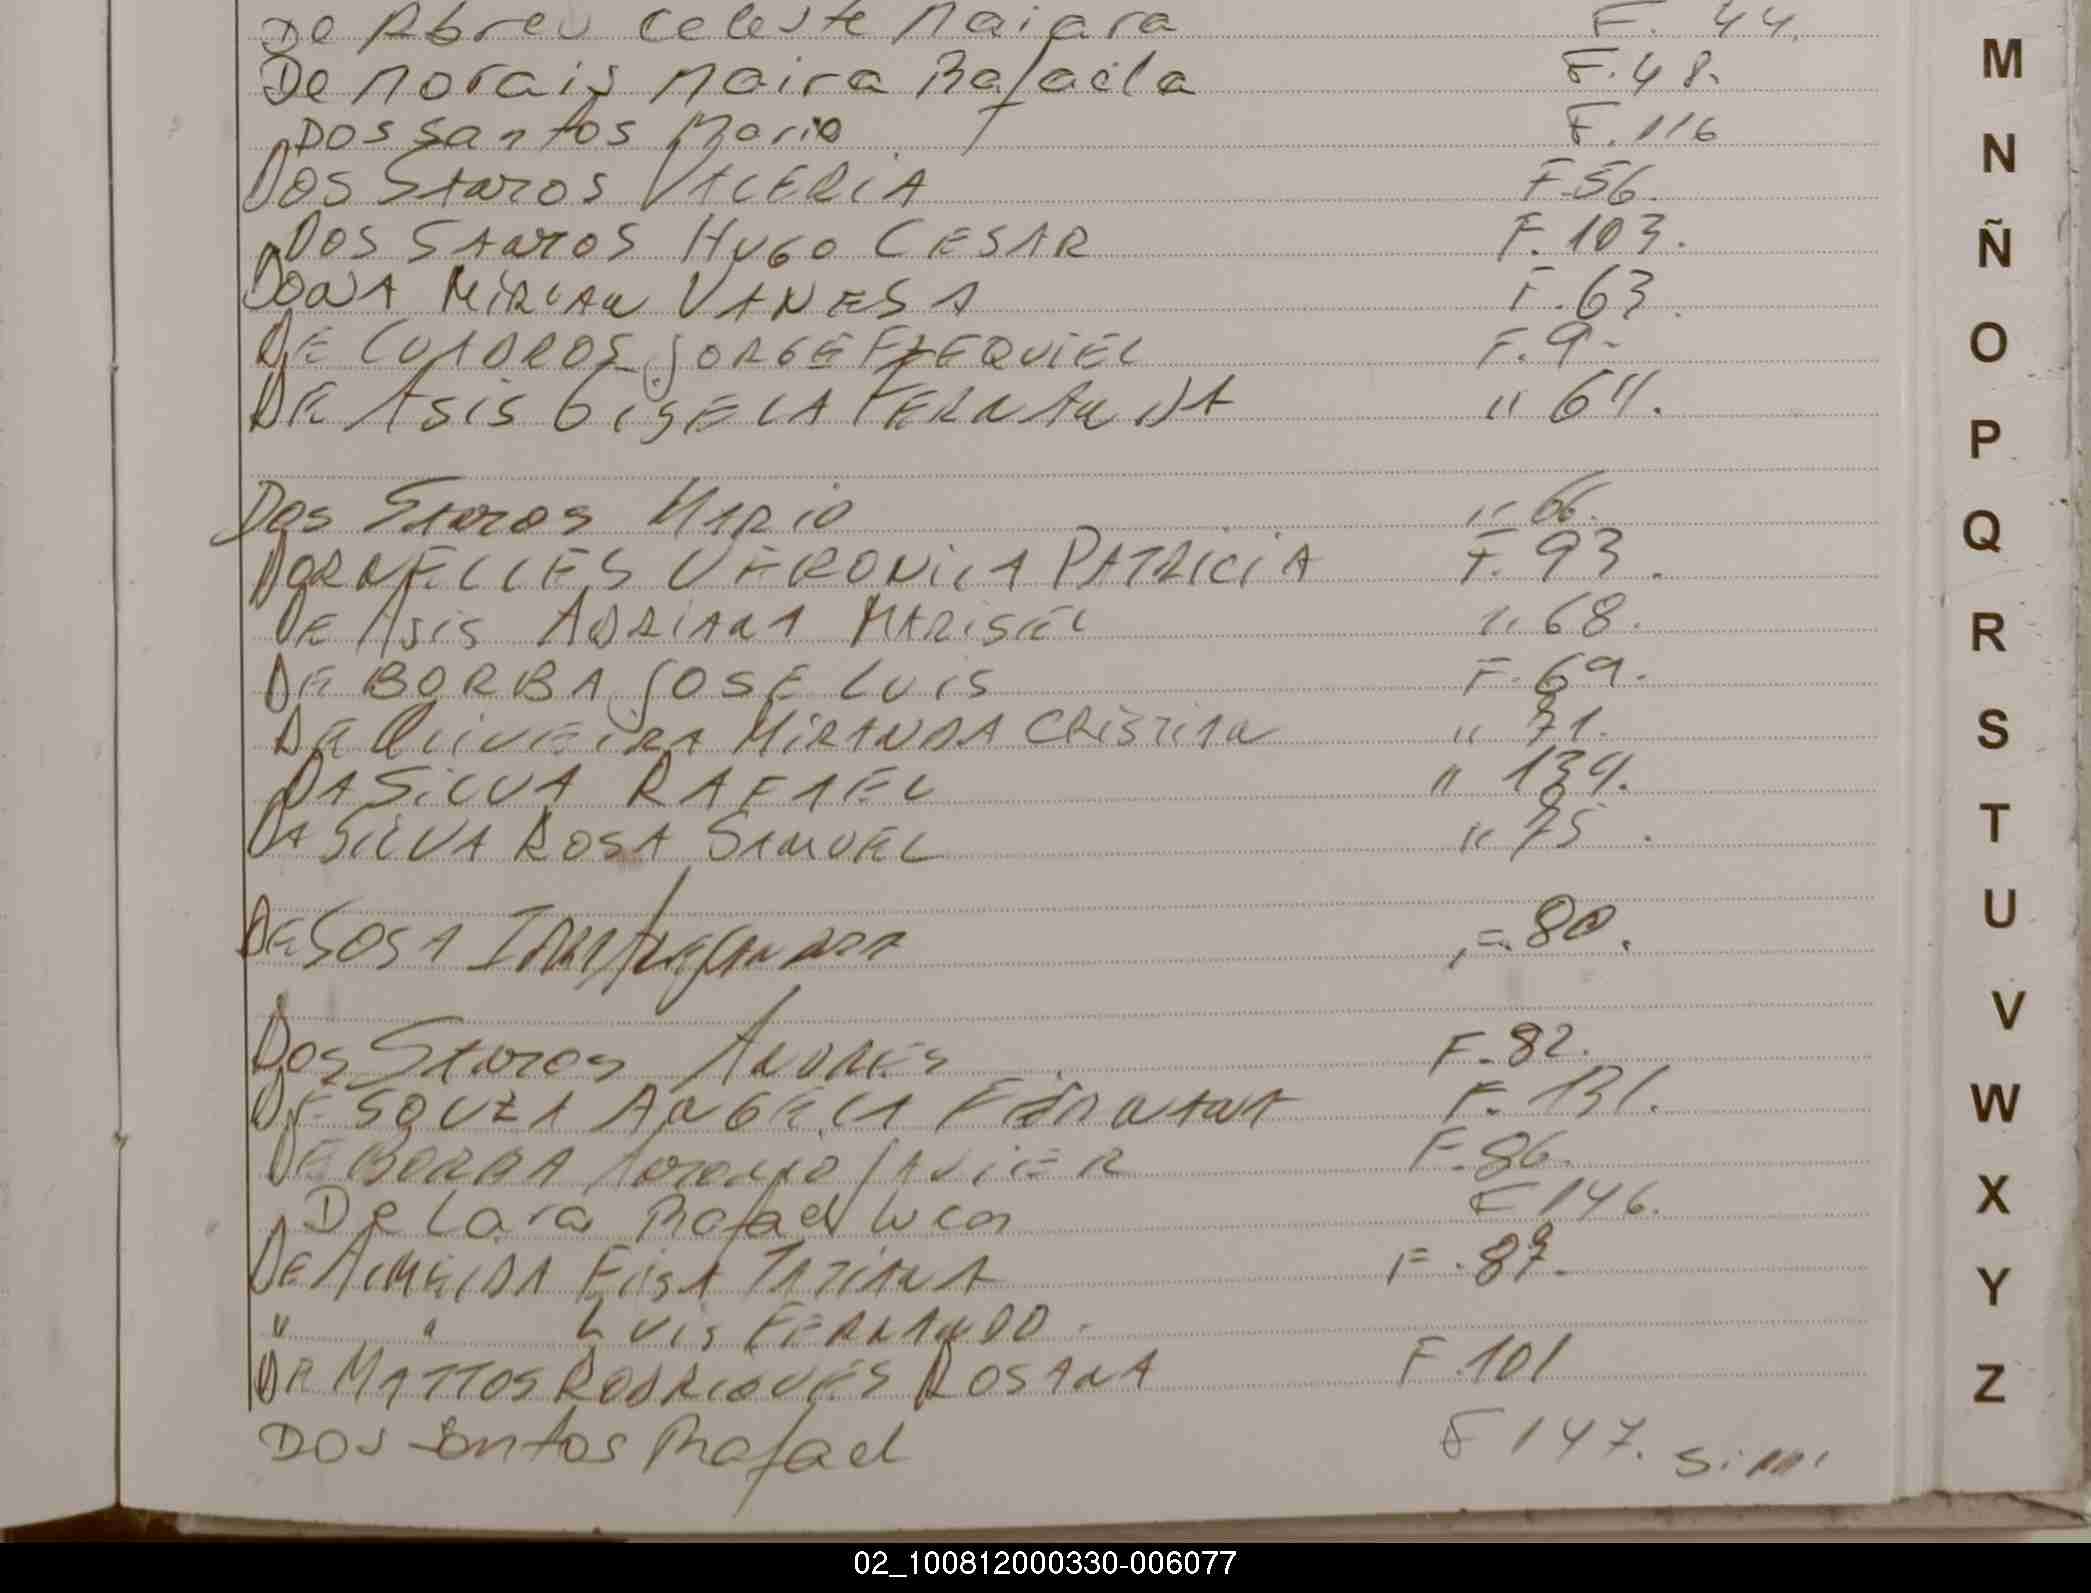 De Abreu Celeste Naiara F. 44.
De Morais Maira Rafaela F. 48.
Dos Santos Mario F. 116
DOS SANTOS VALERIA F 56.
DOS SANTOS HUGO CESAR F. 103.
DONA MIRIAN VANESA F. 63.
DE CUADROS JORGE EZEQUIEL F. 9-
DE ASIS GISELA FERNANDA " 64.
DOS SANTOS MARIO " 66.
DORNELLES VERONICA PATRICIA F. 93.
DE ASIS ADRIANA MARISEL " 68.
DE BORBA JOSE LUIS F. 69.
DE OLIVEIRA MIRANDA CRISTIAN " 71.
DA SILVA RAFAEL " 134.
DA SILVA ROSA SAMUEL " 75.
DE SOSA F. 80.
DOS SANTOS ANDRES F. 82.
DE SOUZA ANGELA F. 131.
DE BORBA ANTONIO JAVIER F. 86.
De Lara Rafael Lucas F 146.
DE ALMEIDA ELISA TATIANA F. 87.
" " LUIS FERNANDO.
DE MATTOS RODRIGUES ROSANA F. 101
Dos Santos Rafael F 147.
M
N
Ñ
O
P
Q
R
S
T
U
V
W
X
Y
Z
02_100812000330-006077